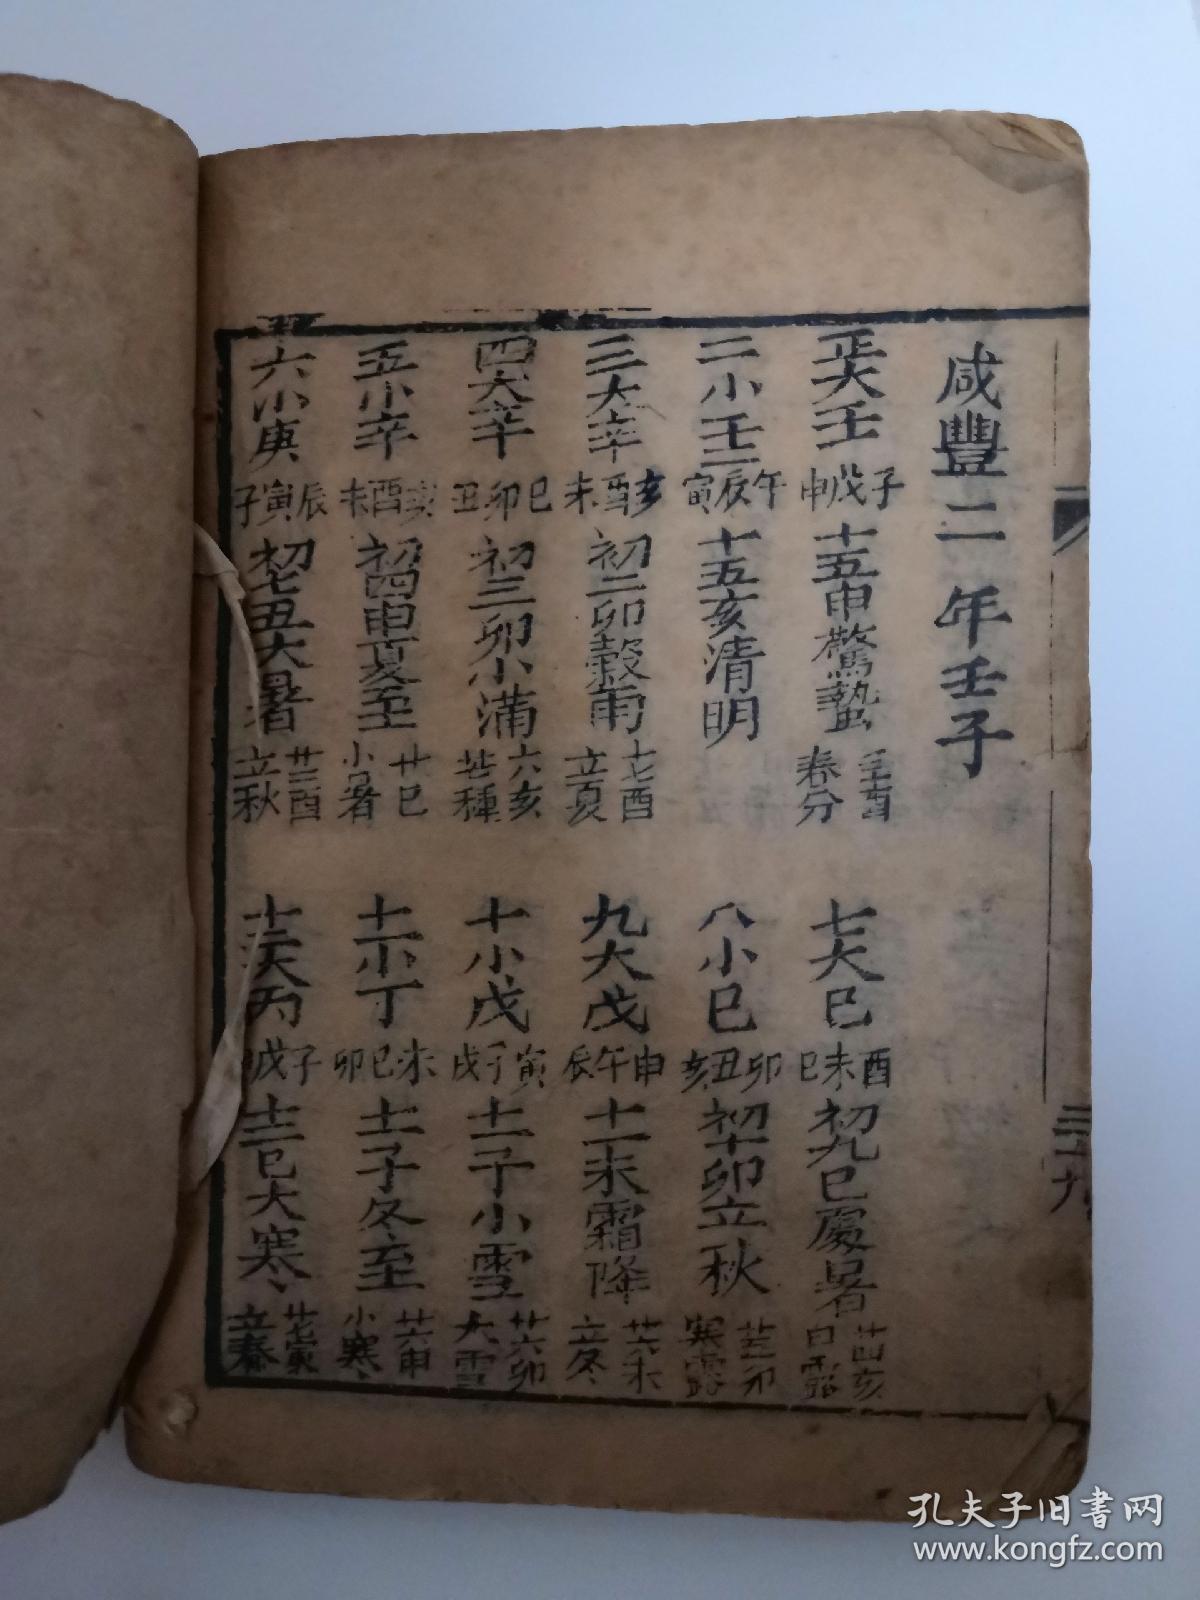 咸豐二年壬子
正大壬 子戌申 十五申驚蟄 三十酉春分
二小壬 午辰寅 十五亥清明
三大辛 亥酉未 初二卯穀雨 十七酉立夏
四大辛 巳卯丑 初三卯小滿 十六亥芒種
五小辛 亥酉未 初四申夏至 廿巳小暑
六小庚 辰寅子 初七丑大暑 廿三酉立秋
七大巳 酉未巳 初九巳處暑 廿四亥白露
八小巳 卯丑亥 初十卯立秋 廿五卯寒露
九大戊 申午辰 十一未霜降 廿六未立冬
十小戊 寅子戌 十一子小雪 廿六卯大雪
十一小丁 未巳卯 十一子冬至 廿六申小寒
十二大丙 子戌 十二巳大寒 廿七寅立春
三十九
孔夫子旧书网
www.kongfz.com